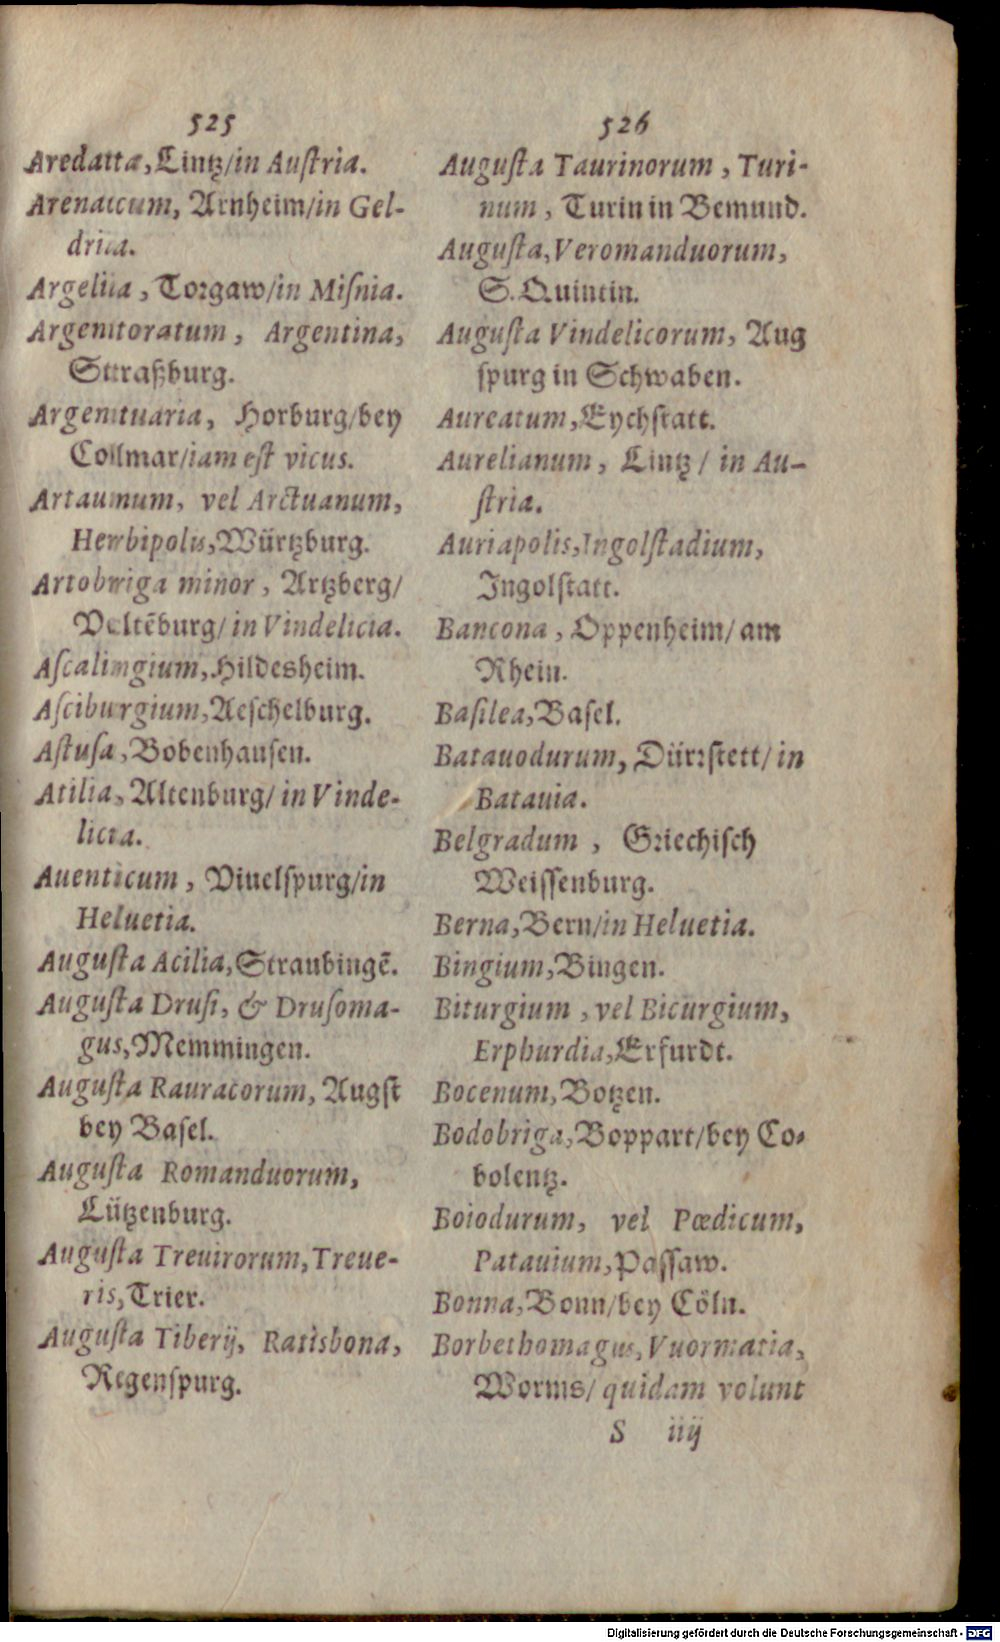 525
Aredatta, Lintz/in Auſtria.
Arenaccum, Arnheim/in Gel-
drica.
Argelia, Torgaw/in Miſnia.
Argentoratum, Argentina,
Straßburg.
Argentuaria, Horburg/bey
Collmar/iam eſt vicus.
Artaunum, vel Arctuanum,
Herbipolis, Würtzburg.
Artobriga minor, Artzberg/
Veltẽburg/in Vindelicia.
Aſcalingium, Hildesheim.
Aſciburgium, Aeſchelburg.
Aſtuſa, Bobenhauſen.
Atilia, Altenburg/in Vinde-
licia.
Auenticum, Viuelſpurg/in
Heluetia.
Auguſta Acilia, Straubingẽ.
Auguſta Druſi, & Druſoma-
gus, Memmingen.
Auguſta Rauracorum, Augſt
bey Baſel.
Auguſta Romanduorum,
Lützenburg.
Auguſta Treuirorum, Treue-
ris, Trier.
Auguſta Tiberij, Ratisbona,
Regenſpurg.
526
Auguſta Taurinorum, Turi-
num, Turin in Bemund.
Auguſta, Veromanduorum,
S. Quintin.
Auguſta Vindelicorum, Aug
ſpurg in Schwaben.
Aureatum, Eychſtatt.
Aurelianum, Lintz/in Au-
ſtria.
Auriapolis, Ingolſtadium,
Ingolſtatt.
Bancona, Oppenheim/am
Rhein.
Baſilea, Baſel.
Batauodurum, Dürꝛſtett/in
Batauia.
Belgradum, Griechiſch
Weiſſenburg.
Berna, Bern/in Heluetia.
Bingium, Bingen.
Biturgium, vel Bicurgium,
Erphurdia, Erfurdt.
Bocenum, Botzen.
Bodobriga, Boppart/bey Co-
bolentz.
Boiodurum, vel Pœdicum,
Patauium, Paſſaw.
Bonna, Bonn/bey Cöln.
Borbethomagus, Vuormatia,
Worms/quidam volunt
S iiij
Digitalisierung gefördert durch die Deutsche Forschungsgemeinschaft - DFG